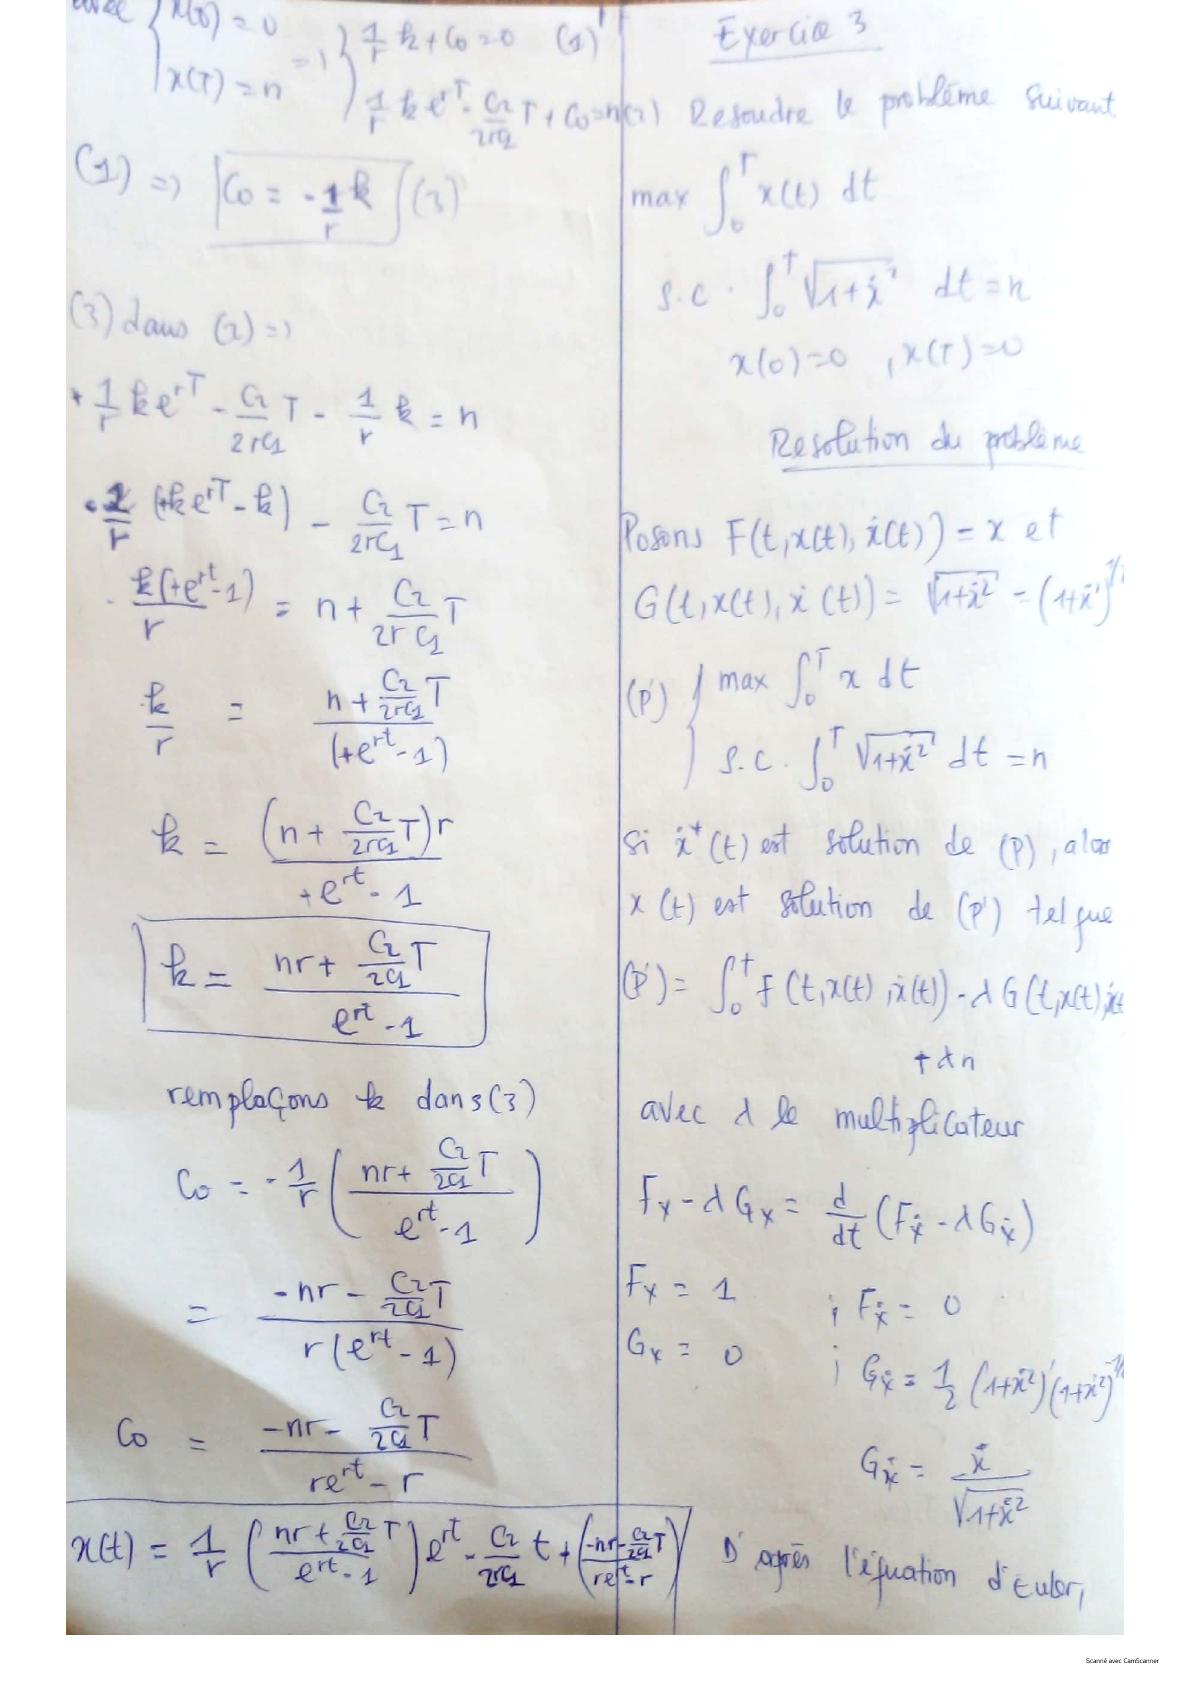 avec { x(0) = 0
x(T) = n
=> { 1/r k + C0 = 0 (1)
1/r k e^{rT} - C2/2rC1 T + C0 = n (2)
(1) => C0 = -1/r k (3)
(3) dans (2) =>
+ 1/r k e^{rT} - C2/2rC1 T - 1/r k = n
1/r (+k e^{rT} - k) - C2/2rC1 T = n
k(+e^{rt} - 1)/r = n + C2/2rC1 T
k/r = (n + C2/2rC1 T)/(+e^{rt} - 1)
k = (n + C2/2rC1 T)r/(+e^{rt} - 1)
k = (nr + C2/2C1 T)/(e^{rt} - 1)
remplaçons k dans (3)
C0 = -1/r ((nr + C2/2C1 T)/(e^{rt} - 1))
= (-nr - C2/2C1 T)/(r(e^{rt} - 1))
C0 = (-nr - C2/2C1 T)/(re^{rt} - r)
x(t) = 1/r ((nr + C2/2C1 T)/(e^{rt} - 1)) e^{rt} - C2/2rC1 t + ((-nr - C2/2C1 T)/(re^{rt} - r))
Exercice 3
Resoudre le problème suivant
max ∫_0^T x(t) dt
s.c. ∫_0^T √(1+ẋ²) dt = n
x(0) = 0 , x(T) = 0
Resolution du problème
Posons F(t, x(t), ẋ(t)) = x et
G(t, x(t), ẋ(t)) = √(1+ẋ²) = (1+ẋ²)^{1/2}
(P') { max ∫_0^T x dt
s.c. ∫_0^T √(1+ẋ²) dt = n
Si ẋ*(t) est solution de (P), alors
x(t) est solution de (P') tel que
(P') = ∫_0^T F(t, x(t), ẋ(t)) - λ G(t, x(t), ẋ(t)
+ λn
avec λ le multiplicateur
Fx - λGx = d/dt (Fẋ - λGẋ)
Fx = 1 ; Fẋ = 0
Gx = 0 ; Gẋ = 1/2 (1+ẋ²)'(1+ẋ²)^{-1/2}
Gẋ = ẋ/√(1+ẋ²)
D'après l'équation d'Euler,
Scanné avec CamScanner